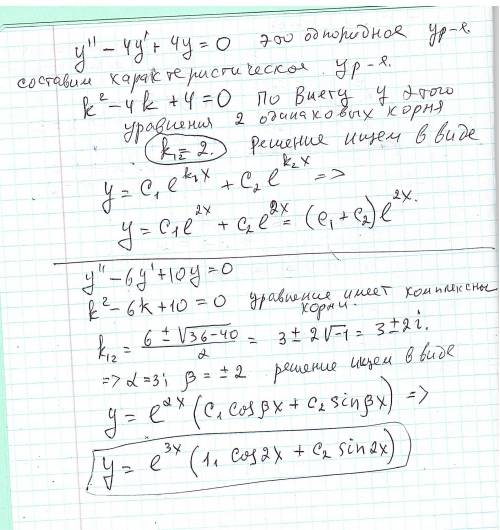 y'' - 4y' + 4y = 0 это однородное ур-е
составим характеристическое ур-е.
k² - 4k + 4 = 0 По Виету у этого
уравнения 2 одинаковых корня
k₁₂ = 2. Решение ищем в виде
y = C₁e^{k₁x} + C₂e^{k₂x} =>
y = C₁e^{2x} + C₂e^{2x} = (C₁ + C₂)e^{2x}.
y'' - 6y' + 10y = 0
k² - 6k + 10 = 0 уравнение имеет комплексны
корни.
k₁₂ = (6 ± √(36-40))/2 = 3 ± 2√-1 = 3 ± 2i.
=> α = 3; β = ± 2 решение ищем в виде
y = e^{αx} (C₁ cos βx + C₂ sin βx) =>
y = e^{3x} (1, cos 2x + C₂ sin 2x)